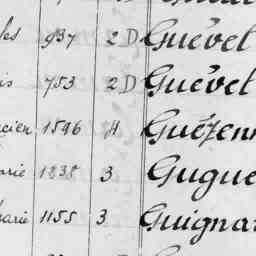 les 937 2 D Guével
is 753 2 D Guével
cien 1596 4 Guézenn
arie 1838 3 Gugue
arie 1155 3 Guignar